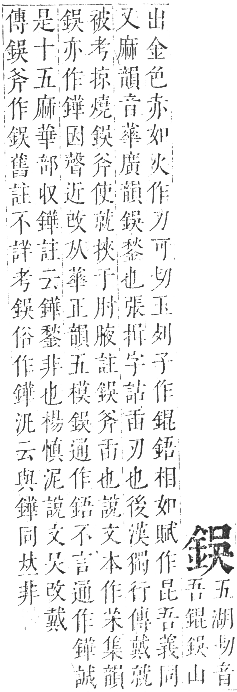 鋘五湖切音
吾錕鋘山
出金色赤如火作刃可切玉列子作錕鋙相如賦作昆吾義同
又麻韻音華廣韻鋘鍫也張揖字詁臿刃也後漢獨行傳戴就
被考掠燒鋘斧使就挾于肘腋註鋘斧臿也說文本作茉集韻
鋘亦作鏵因聲近改从華正韻五模鋘通作鋙不言通作鏵誠
是十五麻華部收鏵註云鏵鍫非也楊慎泥說文吴改戴
傳鋘斧作鋘舊註不詳考鋘俗作鏵泥云與鏵同𠀤非